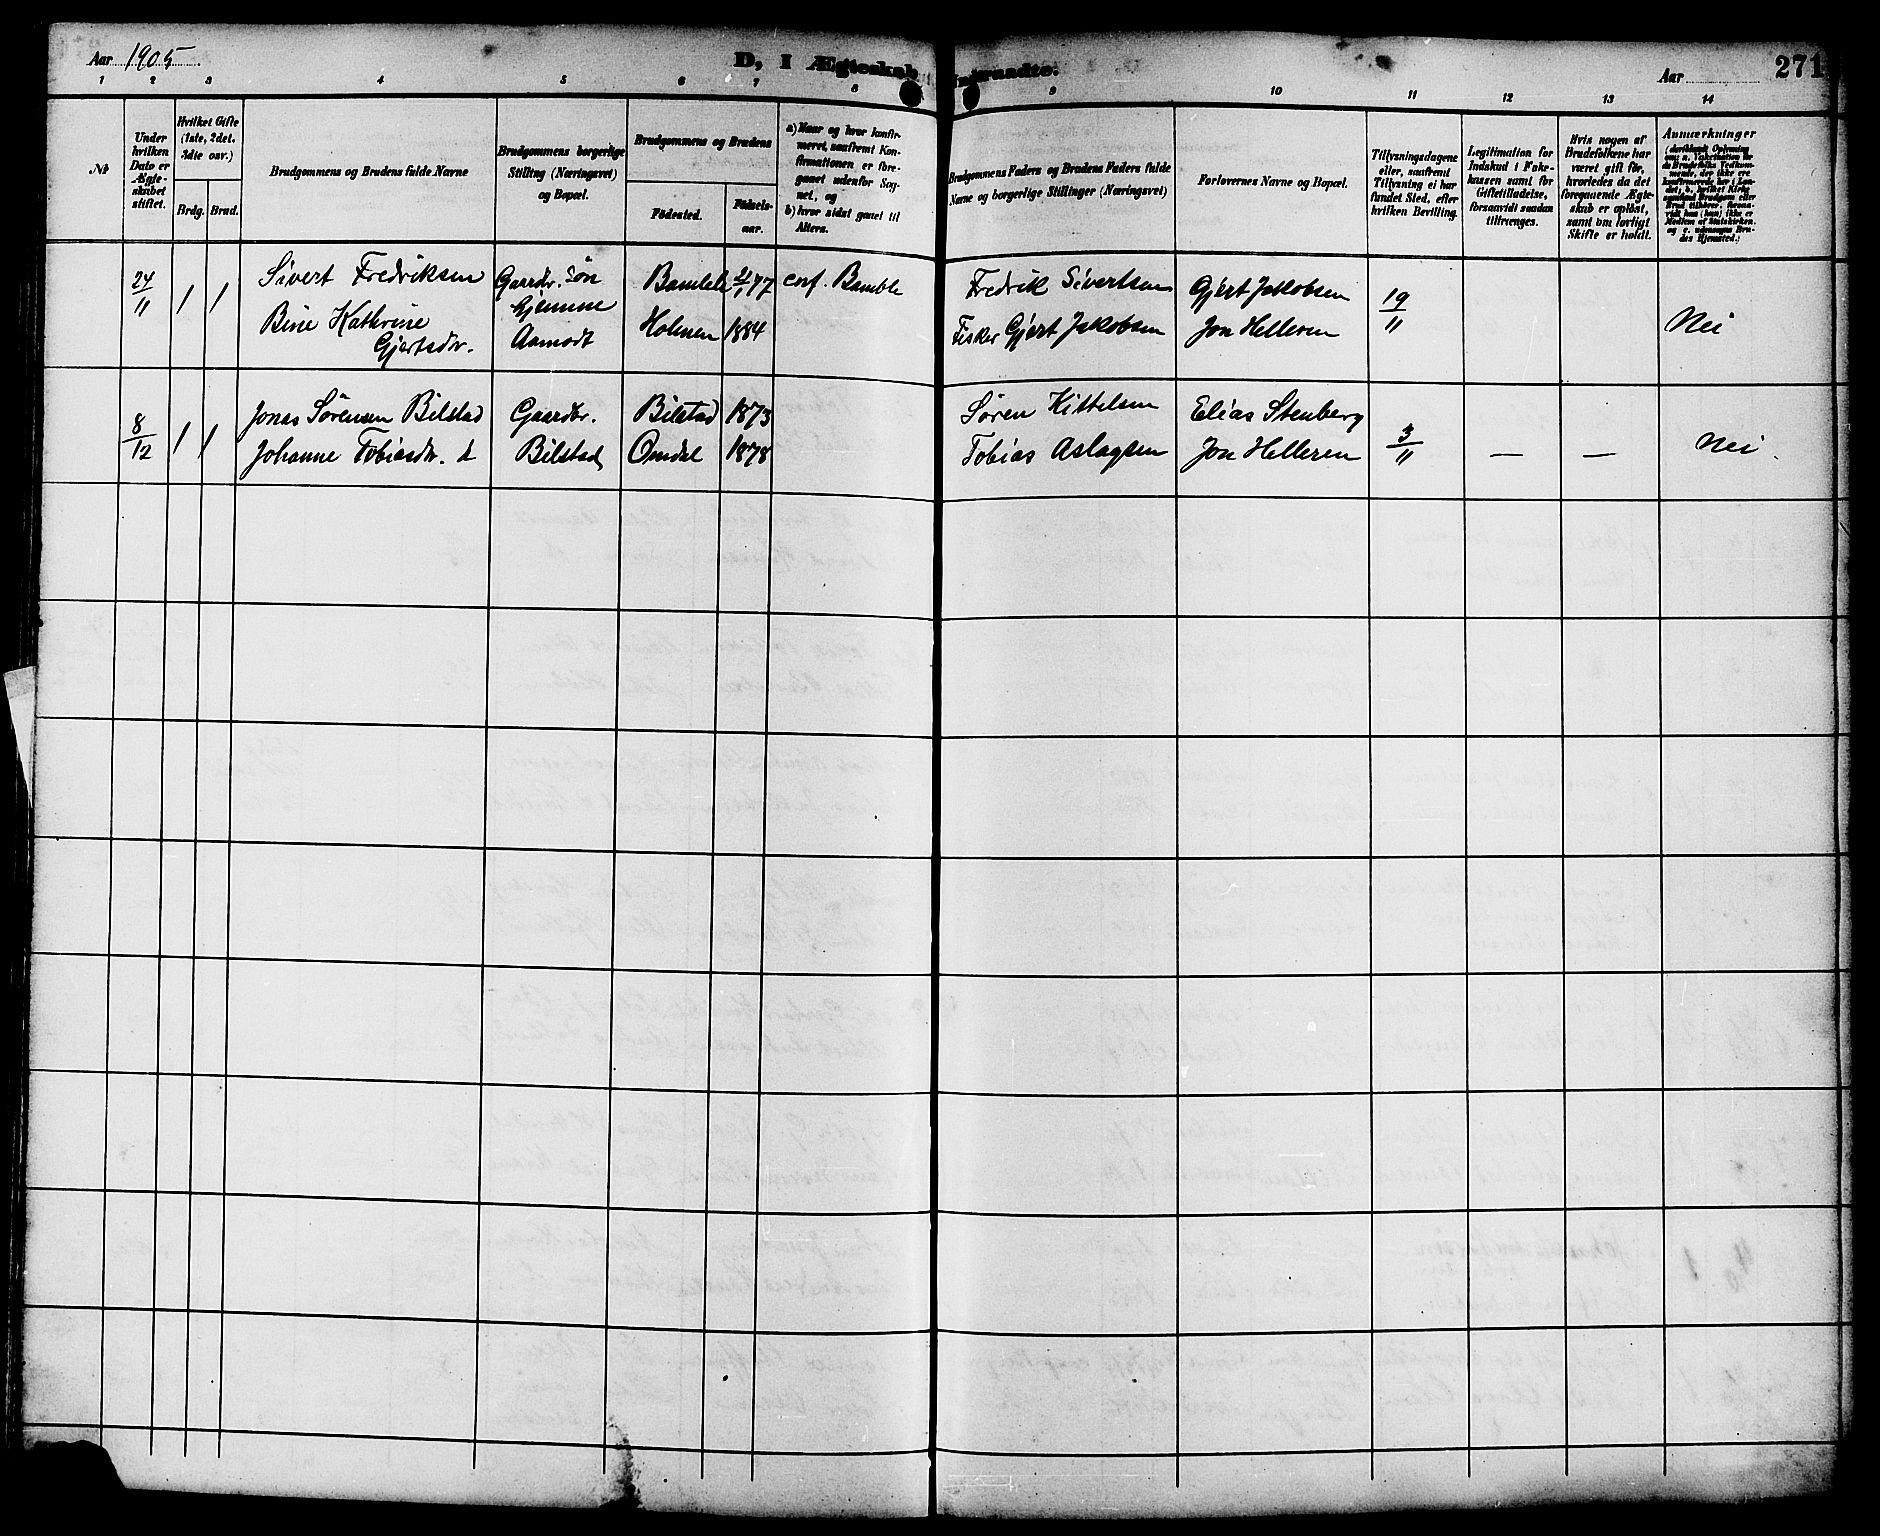 Aar 1905
D, I Ægteskab
Indtraadte.
Aar
271
1 2 3 4 5 6 7 8 9 10 11 12 13 14
No
Under hvilken Dato er Ægteskabet stiftet.
Hvilket Gifte (1ste, 2det, 3die osv.)
Brdg. Brud.
Brudgommens og Brudens fulde Navne
Brudgommens borgerlige Stilling (Næringsvei) og Bopæl.
Brudgommens og Brudens
Fødested. Fødselsaar.
a) Naar og hvor konfirmeret, saafremt Konfirmationen er foregaaet udenfor Sognet, og
b) hvor sidst gaaet til Alters.
Brudgommens Faders og Brudens Faders fulde Navne og borgerlige Stillinger (Næringsvei)
Forlovernes Navne og Bopæl.
Tillysningsdagene eller, saafremt Tillysning ei har fundet Sted, efter hvilken Bevilling.
Legitimation for Indskud i Enkekassen samt for Giftetilladelse, forsaavidt saadan tiltrænges.
Hvis nogen af Brudefolkene har været gift før, hvorledes da det foregaaende Ægteskab er opløst, samt om lovligt Skifte er holdt.
Anmærkninger
24/11 1 1
Sivert Fredriksen
Bine Kathrine
Gjertsdtr.
Gaardbr. søn
Gjemme
Aamodt
Bamble 21/1 77
Holmen 1884
conf. Bamble
Fredrik Sivertsen
Fisker Gjert Jakobsen
Gjert Jakobsen
Jon Helleren
19/11
Nei
8/12 1 1
Jonas Sørensen Bilstad
Johanne Tobiasdtr. d
Gaardbr.
Bilstad
Bilstad 1873
Omdal 1878
Søren Kittelsen
Tobias Aslagsen
Elias Stenberg
Jon Helleren
3/11
— —
Nei.